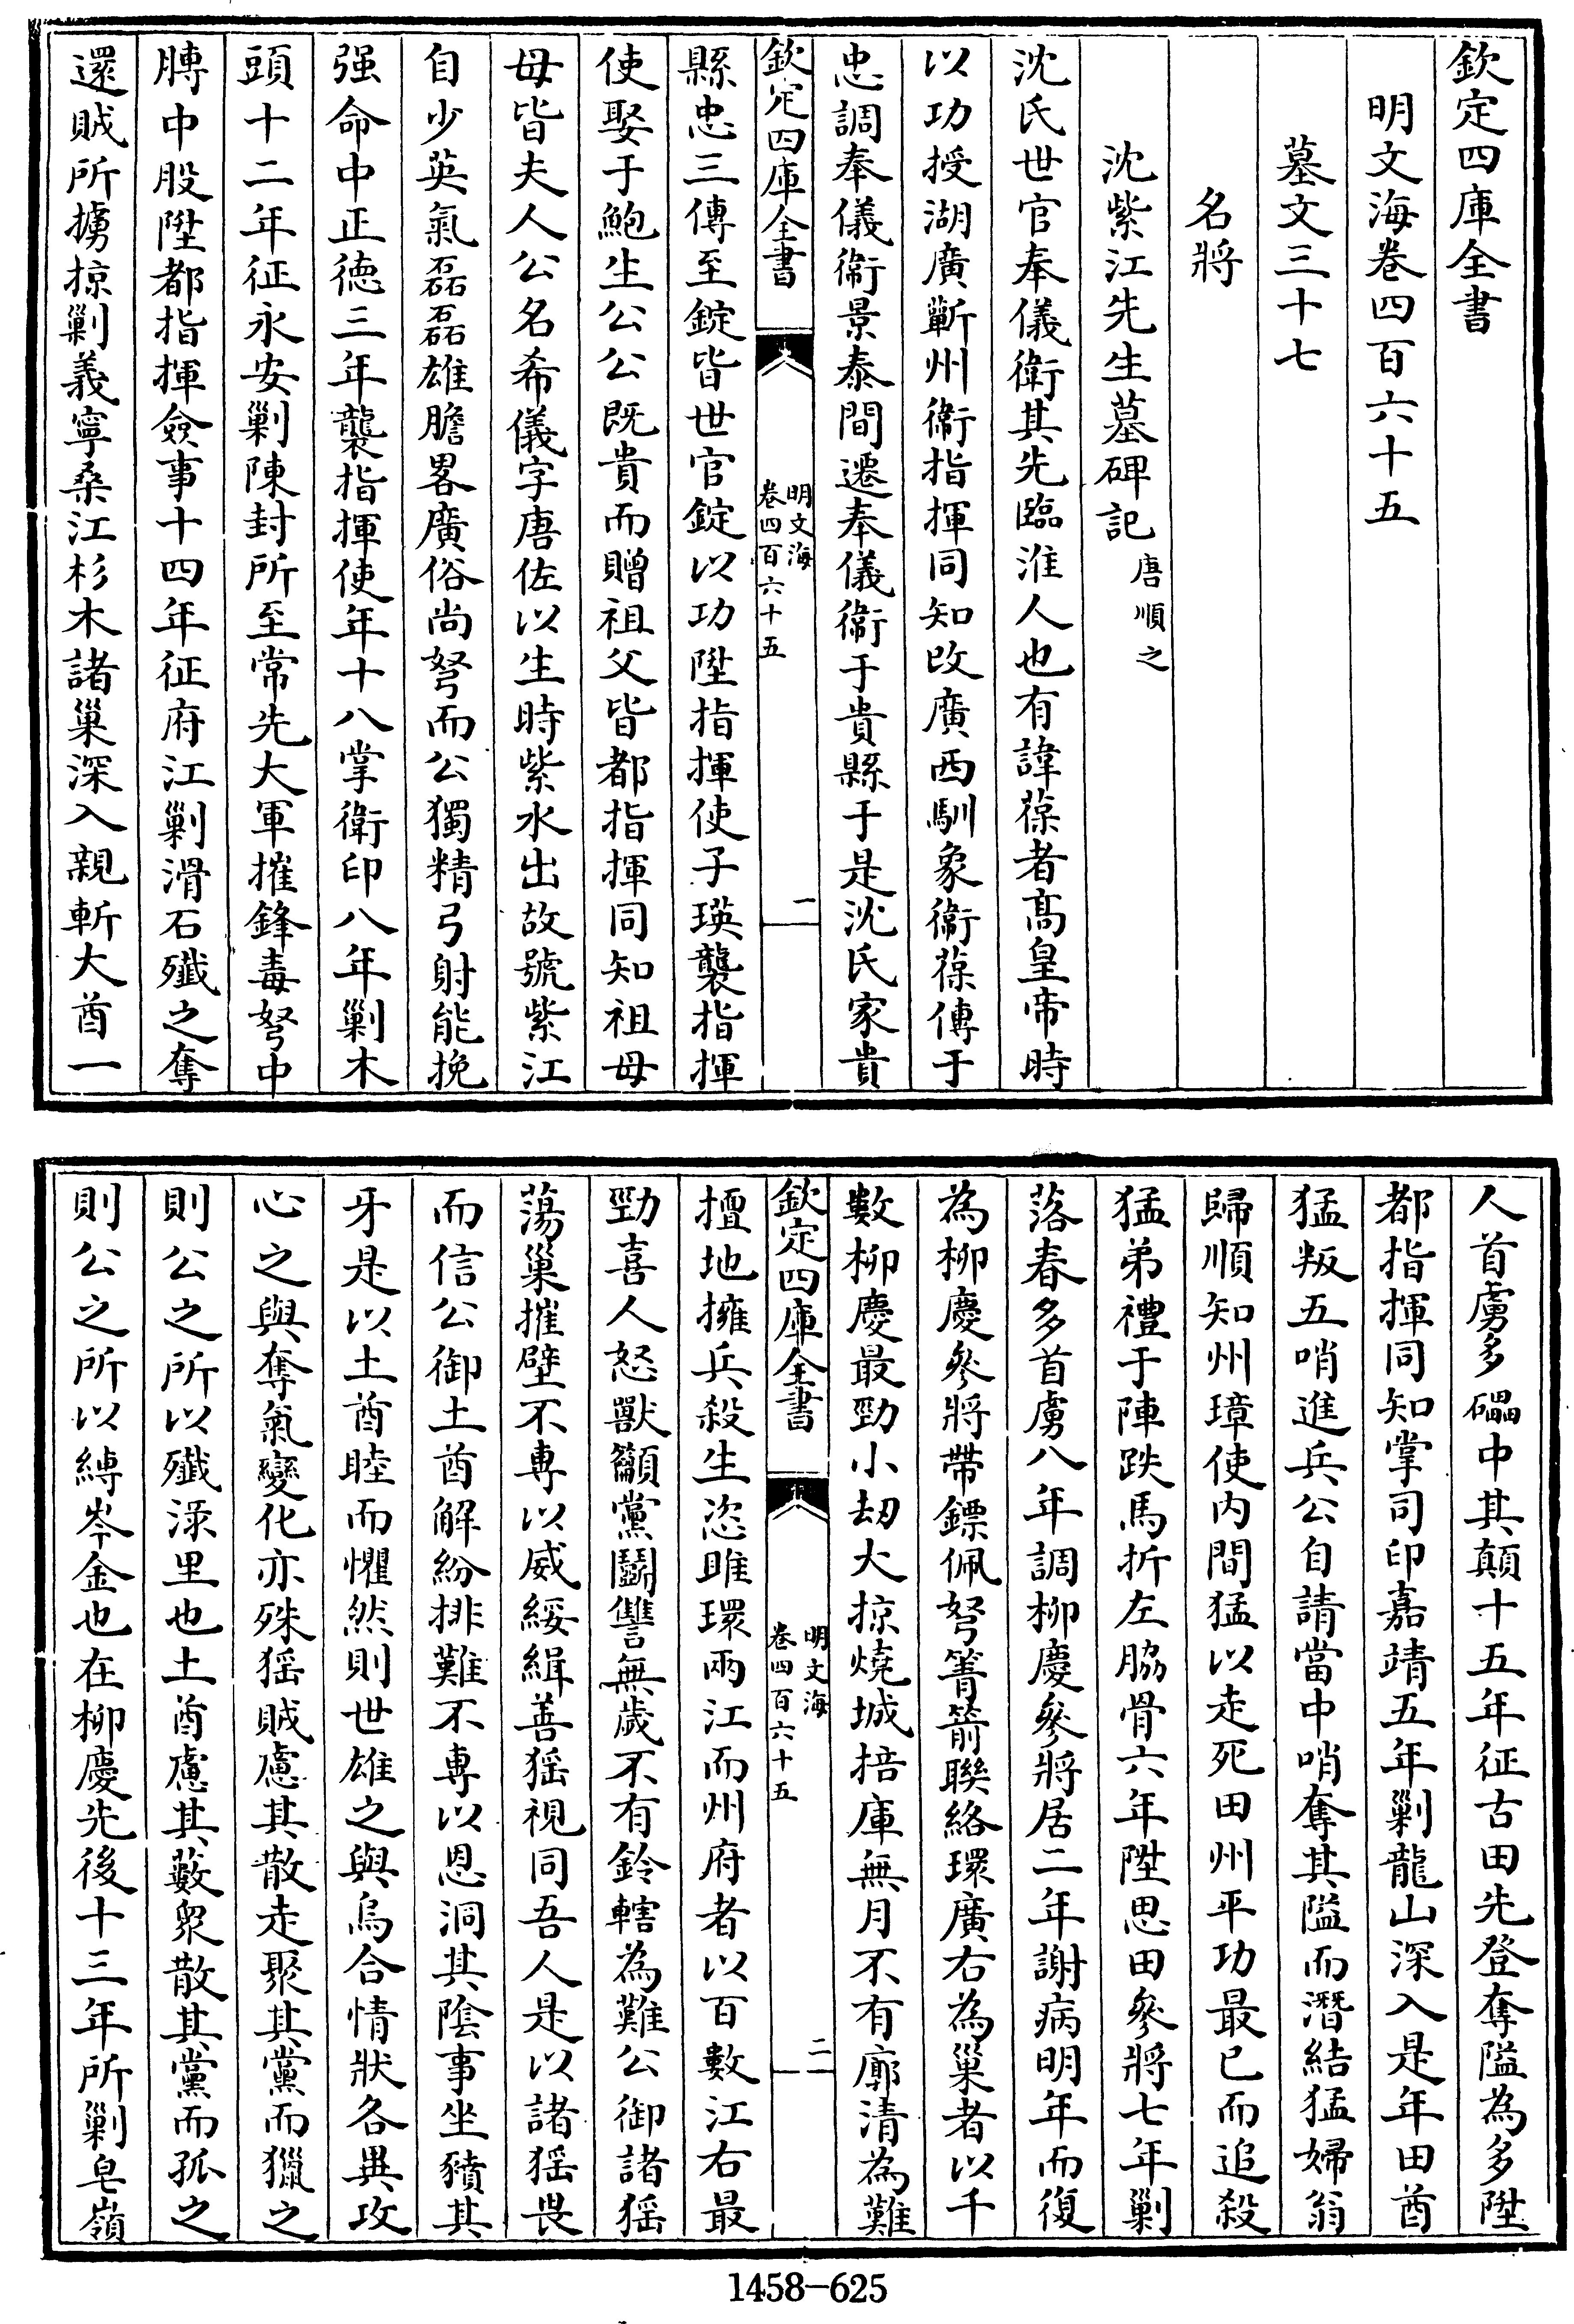 欽定四庫全書
明文海卷四百六十五
墓文三十七
名將
沈紫江先生墓碑記唐順之
沈氏世官奉儀衛其先臨淮人也有諱葆者髙皇帝時
以功授湖廣蘄州衛指揮同知改廣西馴象衛葆傳于
忠調奉儀衛景泰間遷奉儀衛于貴縣于是沈氏家貴
欽定四庫全書
明文海
卷四百六十五
一
縣忠三傳至錠皆世官錠以功陞指揮使子瑛襲指揮
使娶于鮑生公公既貴而贈祖父皆都指揮同知祖母
母皆夫人公名希儀字唐佐以生時紫水出故號紫江
自少英氣磊磊雄膽畧廣俗尚弩而公獨精弓射能挽
强命中正德三年襲指揮使年十八掌衛印八年剿木
頭十二年征永安剿陳封所至常先大軍摧鋒毒弩中
膊中股陞都指揮僉事十四年征府江剿滑石殲之奪
還賊所擄掠剿義寧桑江杉木諸巢深入親斬大酋一
人首虜多礧中其顛十五年征古田先登奪隘為多陞
都指揮同知掌司印嘉靖五年剿龍山深入是年田酋
猛叛五哨進兵公自請當中哨奪其隘而潛結猛婦翁
歸順知州璋使内間猛以走死田州平功最已而追殺
猛弟禮于陣跌馬折左脇骨六年陞思田參將七年剿
落春多首虜八年調柳慶參將居二年謝病明年而復
為柳慶參將帶鏢佩弩箐箭聯絡環廣右為巢者以千
數柳慶最勁小刼大掠燒城掊庫無月不有廓清為難
欽定四庫全書
明文海
卷四百六十五
二
擅地擁兵殺生恣雎環兩江而州府者以百數江右最
勁喜人怒獸籲黨鬭讐無歲不有鈴轄為難公御諸猺
蕩巢摧壁不專以威綏緝善猺視同吾人是以諸猺畏
而信公御土酋解紛排難不專以恩洞其陰事坐豶其
牙是以土酋睦而懼然則世雄之與烏合情狀各異攻
心之與奪氣變化亦殊猺賊慮其散走聚其黨而獵之
則公之所以殲渌里也土酋慮其藪衆散其黨而孤之
則公之所以縛岑金也在柳慶先後十三年所剿皂嶺
1458-625